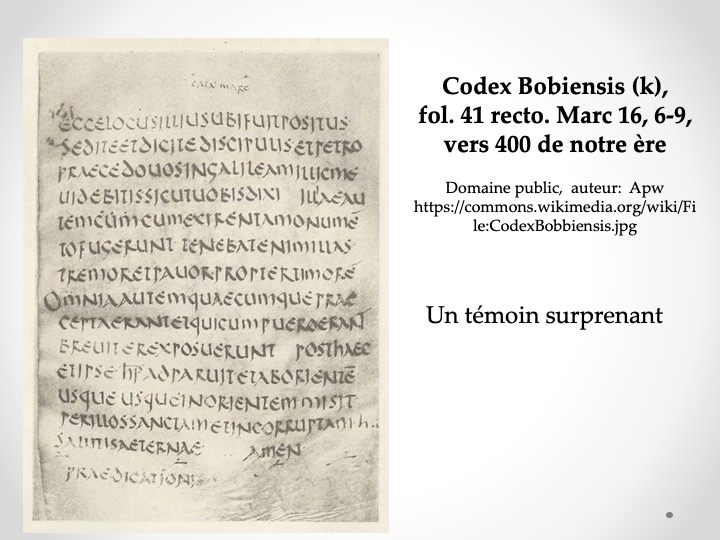 ECCE LOCUS ILLIUS UBI FUIT POSITUS
SED ITE ET DICITE DISCIPULIS ET PETRO
PRAECEDO UOS IN GALILEAM ILLIC ME
UIDEBITIS SICUT UOBIS DIXI ILLAE AU
TEM CUM CUM EXIRENT A MONUMĒ
TO FUGERUNT TENEBAT ENIM ILLAS
TREMOR ET PAUOR PROPTER TIMORĒ
OMNIA AUTEM QUAECUMQUE PRAE
CEPTA ERANT ET QUI CUM PUERO ERAN
BREUITER EXPOSUERUNT POSTHAEC
ET IPSE ADPARUIT ET AB ORIENTĒ
USQUE USQUE IN ORIENTEM MISIT
PER ILLOS SANCTAM ET INCORRUPTAM
SALUTIS AETERNAE AMEN
PRAEDICATIONIS
Codex Bobiensis (k),
fol. 41 recto. Marc 16, 6-9,
vers 400 de notre ère
Domaine public, auteur: Apw
https://commons.wikimedia.org/wiki/Fi
le:CodexBobbiensis.jpg
Un témoin surprenant